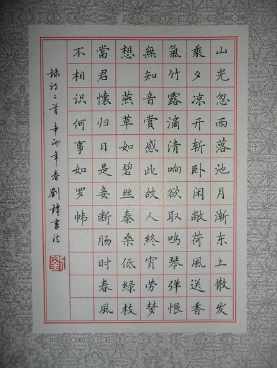 山光忽西落池月漸东上散发
乘夕凉开轩卧闲敞荷風送香
氣竹露滴清响欲取鸣琴弹恨
無知音賞感此故人終宵劳梦
想 燕草如碧丝秦桑低緑枝
當君懷归日是妾断肠时春風
不相识何事如罗帏
诗二首 年春劉 書